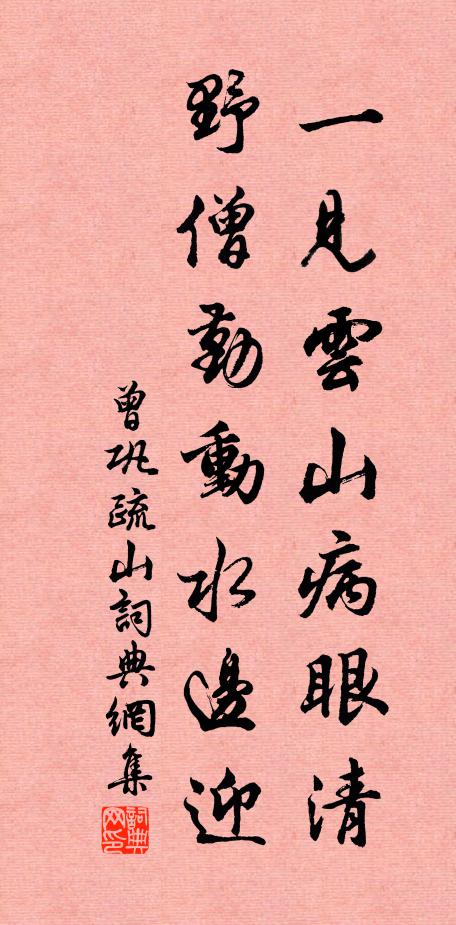 一見雲山病眼清
野僧勤動水邊迎
曾巩疏山詞典網集
詞典网印